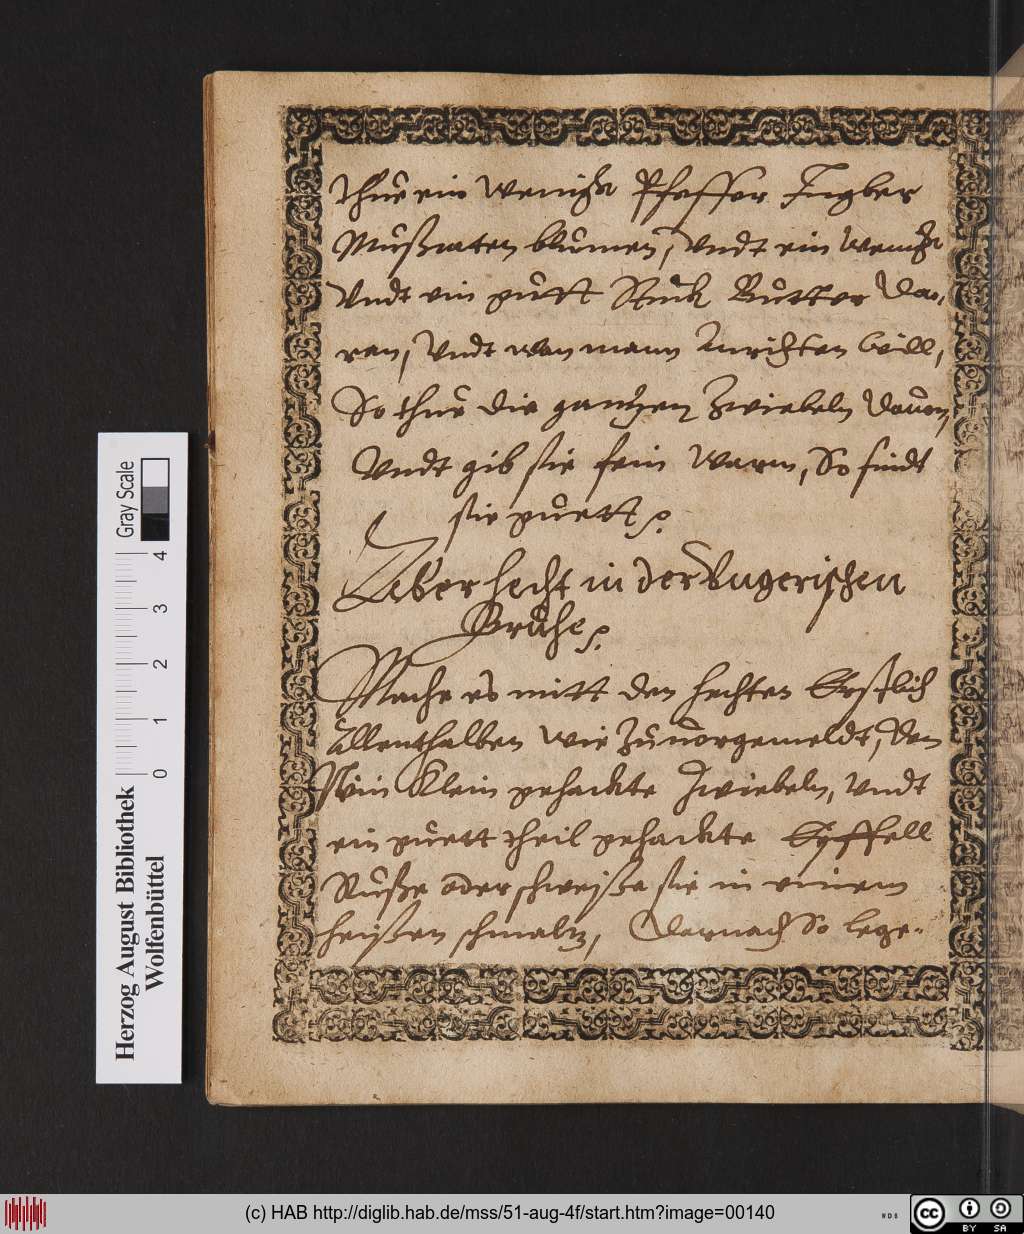 thue ein wenigk Pfeffer Ingber
Mußcaten blumen, Vndt ein wenigk
Vndt ein gutt Stück Butter dar„
ran, Vndt wan mann Anrichten will,
So thue die gantzen Zwiebeln dauon,
Vndt gib sie fein warm, So sindt
sie guett
Aber hecht in der Vngerischen
Bruhe
Mache es mitt den hechten Erstlich
Allenthalben wie Zuuorgemeldt, den
Nim Klein gehackte Zwiebeln, Vndt
ein guett theil gehackte Epffell
Rüße oder schweiße sie in einem
heißen schmaltz, Darnach So lege
Herzog August Bibliothek
Wolfenbüttel
0 1 2 3 4
Gray Scale
(c) HAB http://diglib.hab.de/mss/51-aug-4f/start.htm?image=00140
WDB
cc BY SA